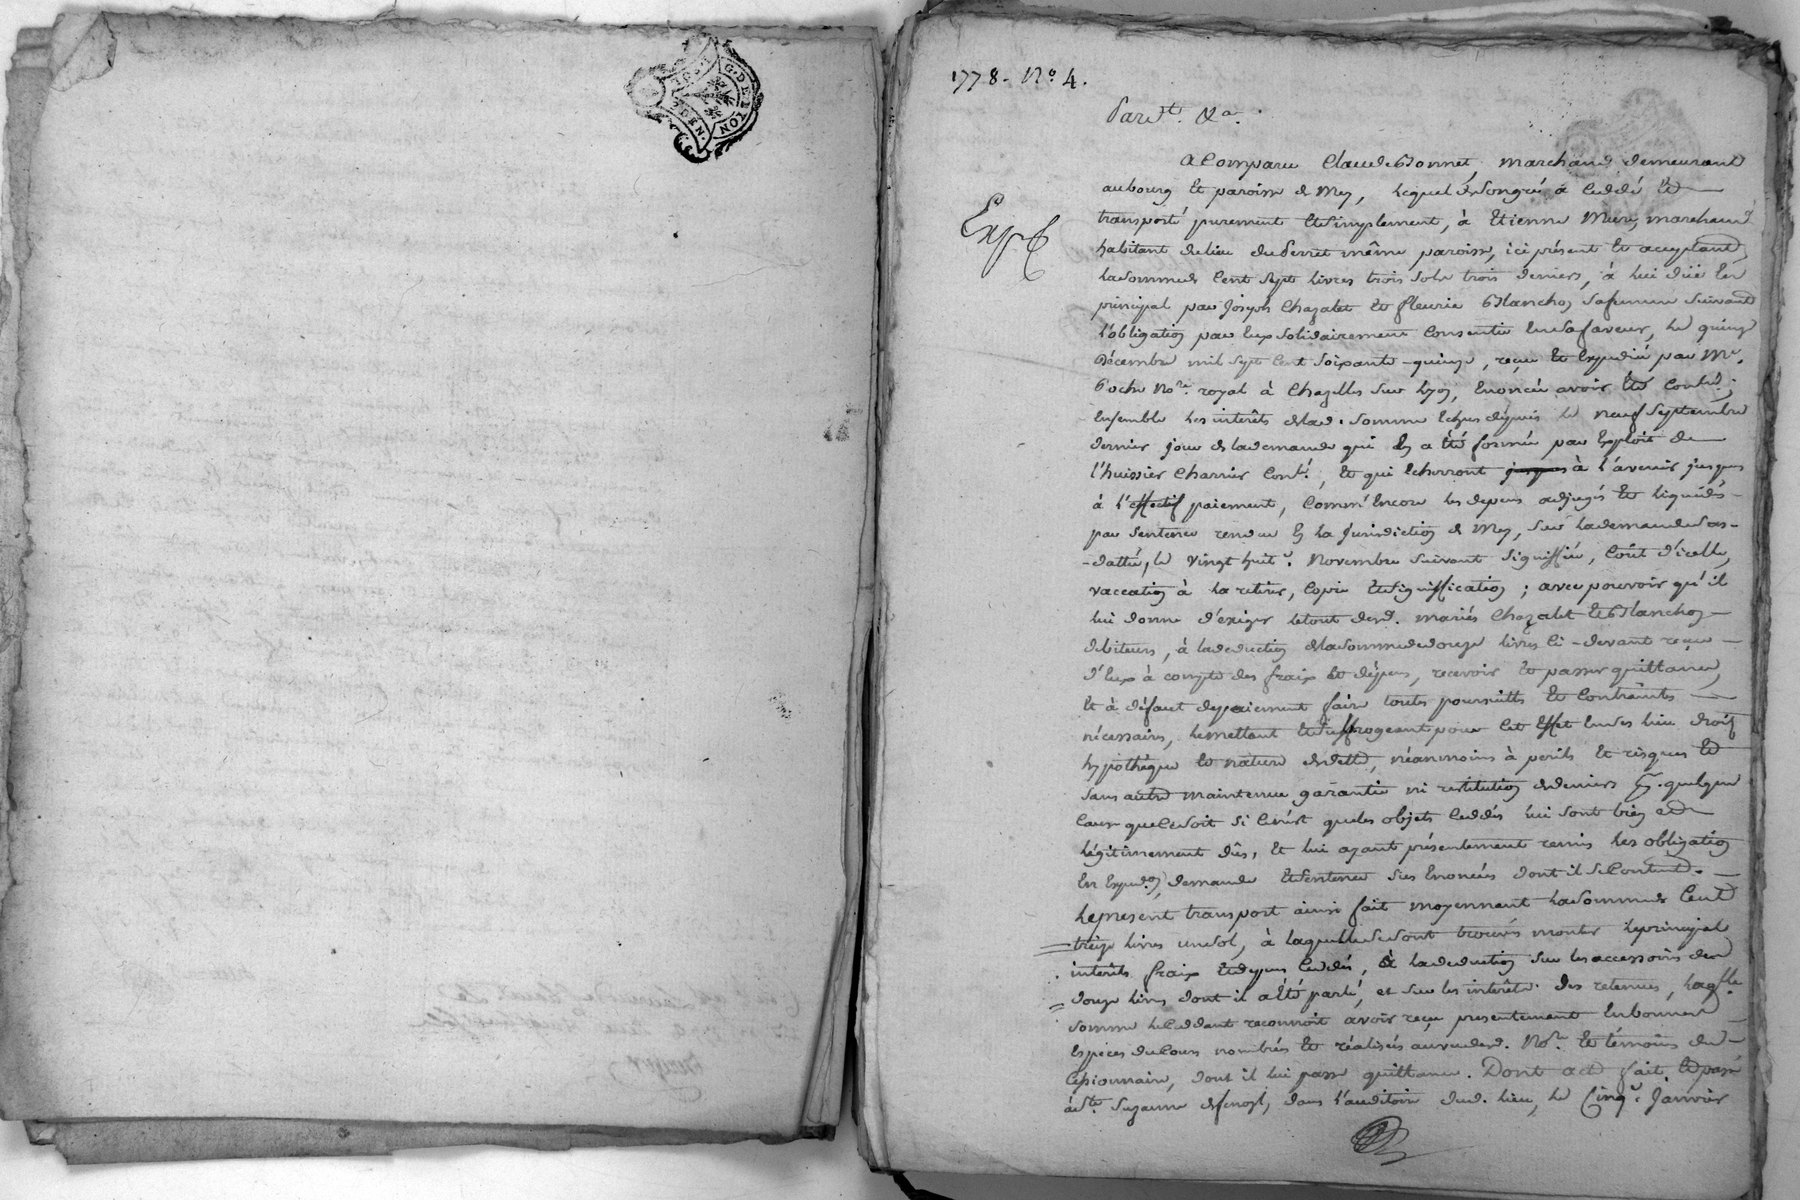 G. DE LION
2 DEN.
1778. No. 4.
Pardt. &a.
Exp. C
a Comparu Claude Bonnet, marchand demeurant
au bourg et paroisse de Mey, lequel de son gré a ceddé et
transporté purement et simplement, à Etienne Mure, marchand
habitant du lieu du Perret même paroisse, ici présent et acceptant,
la somme de Cent sept livres trois sols trois deniers, à lui düe en
principal par Joseph Chazalet et fleurie Blanchon sa femme suivant
l'obligation par eux solidairement Consentie en sa faveur, le quinze
Décembre mil sept Cent soixante-quinze, reçue et Expédiée par Me.
Boche Nore. royal à Chazelles sur Lyon, Enoncée avoir été Contlée.;
Ensemble les intérêts de lad. somme Echus depuis le neuf septembre
dernier jour de la demande qui En a été formée par Exploit de
l'huissier Charrier Contlé., et qui Echerront jusques à l'avenir jusques
à l'effectif paiement, Comm'Encore les depens adjugés et liquidés
par sentence rendue En la Jurisdiction de Mey, sur la demande sus-
-dattée, le vingt huit. Novembre suivant signiffiée, Coût d'icelle,
vaccation à la retirer, Copie et signiffication; avec pouvoir qu'il
lui donne d'exiger le tout desd. mariés Chazalet et Blanchon
débiteurs, à la deduction de la somme de douze livres ci-devant reçue
d'eux à compte des fraix et dépens, recevoir et passer quittance,
et à défaut de paiement faire toutes poursuites et contraintes
nécessaires, le mettant et subrogeant pour cet effet en ses lieu droit
hypothèque et nature de dette, néanmoins à perils et risques et
sans autre maintenue garantie ni restitution de deniers pr. quelque
cause que ce soit si ce n'est que les objets ceddés lui sont bien et
légitimement dûs, et lui ayant présentement remis les obligation
En Expedon., demande et sentence sus Enoncées dont il se Contente.
Le present transport ainsi fait moyennant la somme de Cent
treize livres un sol, à laquelle se sont trouvés monter le principal
interêts fraix et depens ceddés, à la deduction sur les accessoires des
douze livres dont il a été parlé, et sur les intérêts des retenues, laqlle.
somme le Ceddant reconnoit avoir reçue presentement en bonnes
Espèces du Cours nombrés et réalisés au vu desd. Nore. et témoins du
Cessionnaire, dont il lui passe quittance. Dont acte fait et passé
à Ste. Suzanne de fenoyl, dans l'auditoire dud. lieu, le Cinqe. Janvier